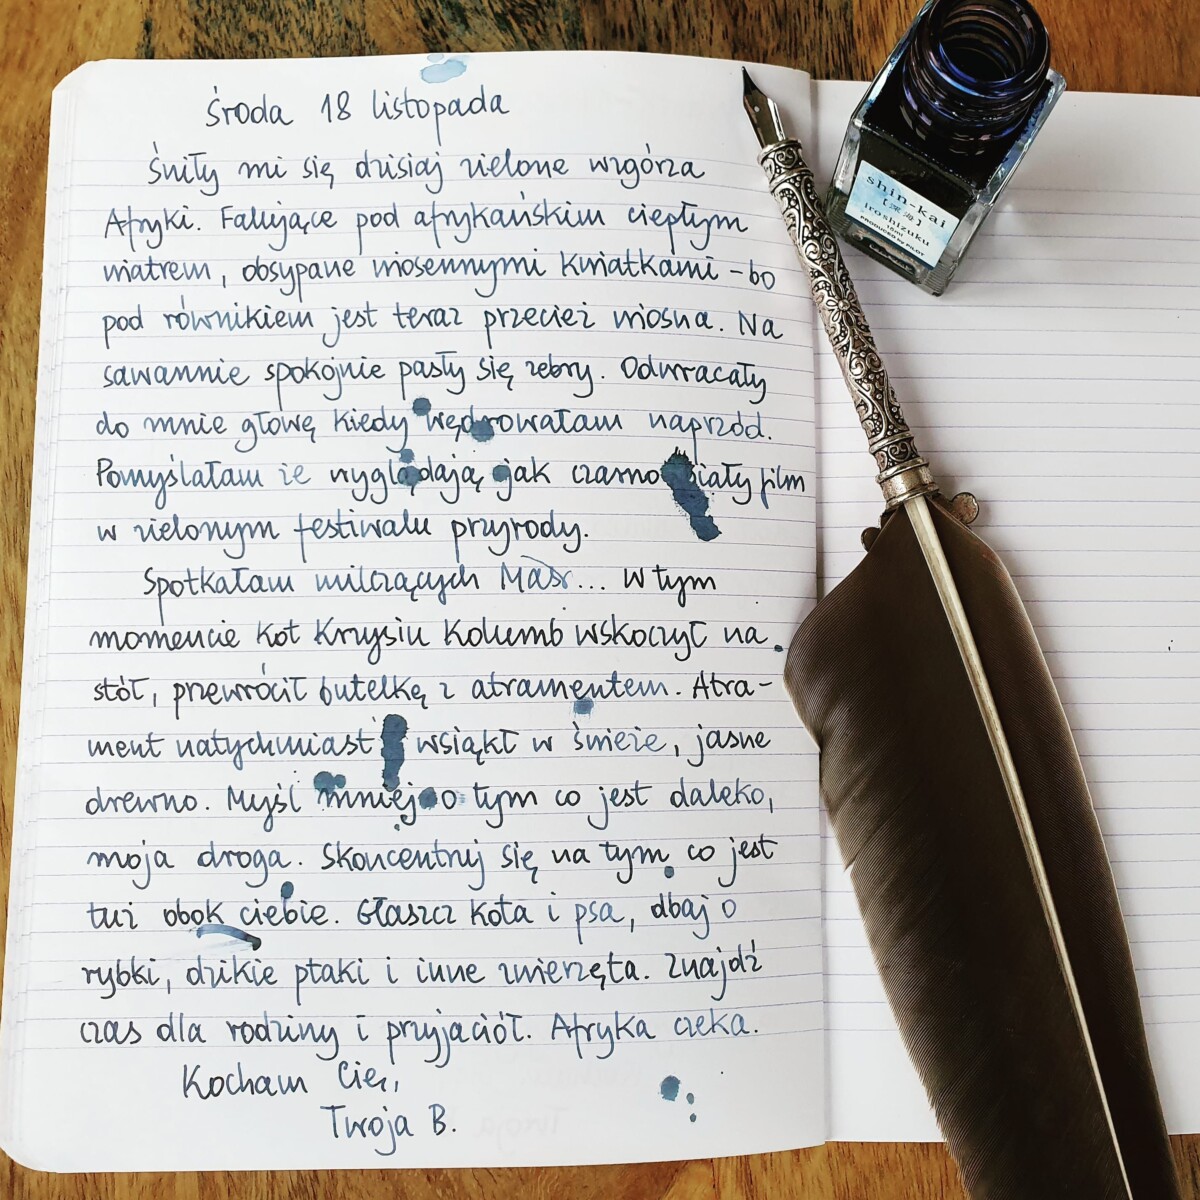 środa 18 listopada
śniły mi się dzisiaj zielone wzgórza
Afryki. Falujące pod afrykańskim ciepłym
wiatrem, obsypane wiosennymi kwiatkami - bo
pod równikiem jest teraz przecież wiosna. Na
sawannie spokojnie pasły się zebry. Odwracały
do mnie głowę kiedy wędrowałam naprzód.
Pomyślałam że wyglądają jak czarno biały film
w zielonym festiwalu przyrody.
Spotkałam milczących Masr... w tym
momencie kot Krzysiu Kolumb wskoczył na
stół, przewrócił butelkę z atramentem. Atra-
ment natychmiast wsiąkł w świeże, jasne
drewno. Myśl mniej o tym co jest daleko,
moja droga. Skoncentruj się na tym co jest
tuż obok ciebie. Głaszcz kota i psa, dbaj o
rybki, dzikie ptaki i inne zwierzęta. Znajdź
czas dla rodziny i przyjaciół. Afryka czeka.
Kocham Cię,
Twoja B.
shin-kai
[深海]
iroshizuku
15ml
PRODUCED by PILOT